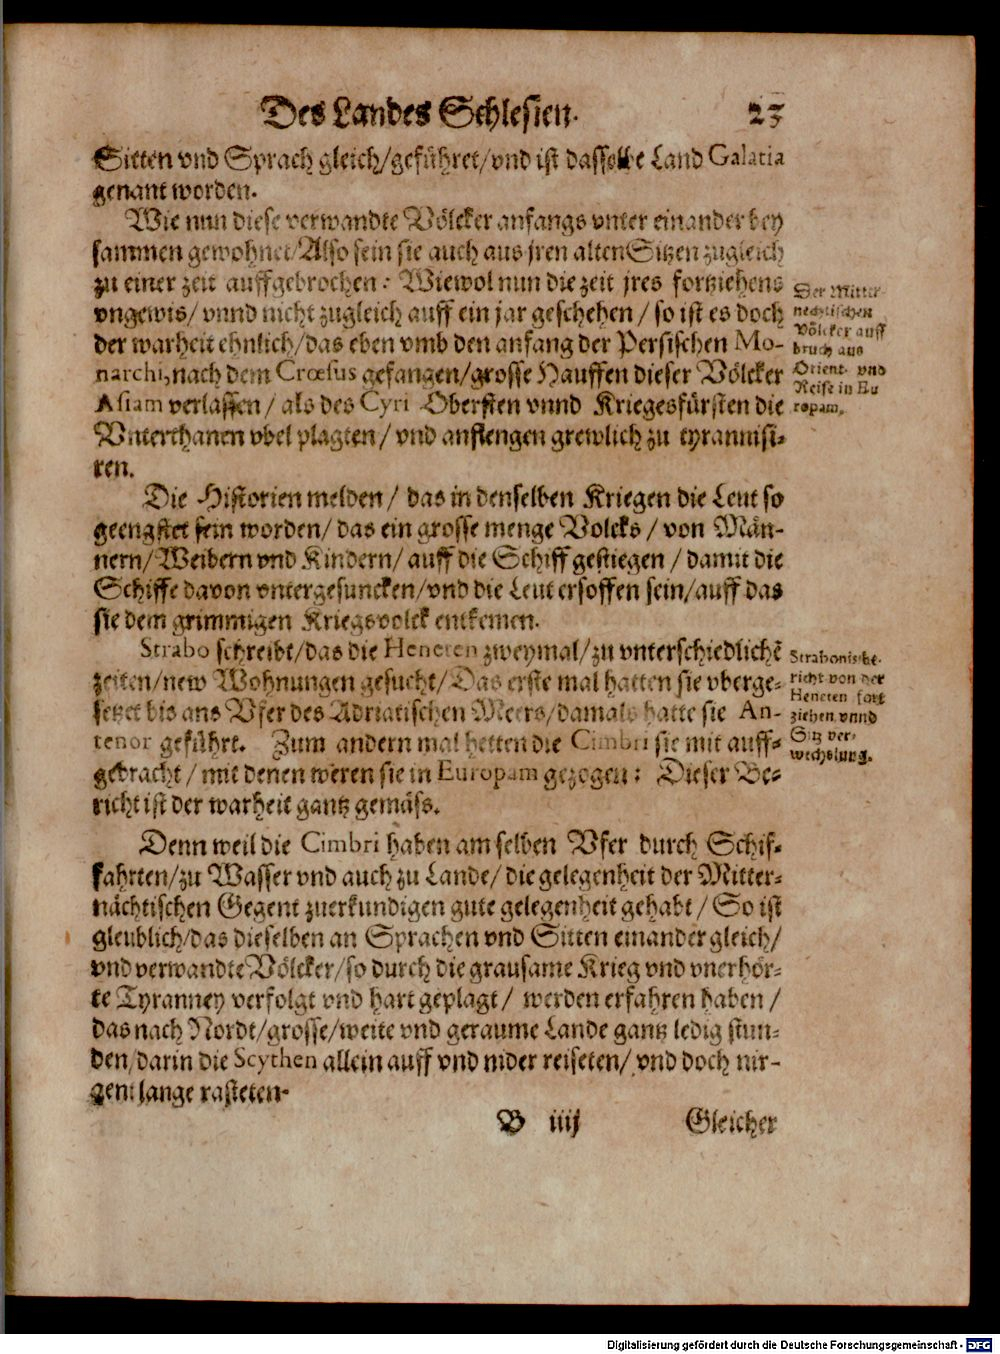 Des Landes Schlesien. 23
Sitten vnd Sprach gleich/geführet/vnd ist dasselbe Land Galatia
genant worden.
Wie nun diese verwandte Völcker anfangs vnter einander bey
sammen gewohnet/Also sein sie auch aus jren alten Sitzen zugleich
zu einer zeit auffgebrochen: Wiewol nun die zeit jres fortziehens
vngewis/ vnnd nicht zugleich auff ein jar geschehen / so ist es doch
der warheit ehnlich/das eben vmb den anfang der Persischen Mo-
narchi, nach dem Crœsus gefangen/grosse Hauffen dieser Völcker
Asiam verlassen / als des Cyri Obersten vnnd Kriegesfürsten die
Vnterthanen vbel plagten / vnd anfiengen grewlich zu tyrannisi-
ren.
Der Mitter-
nechtischen
Völcker auff
bruch aus
Orient- vnd
Reise in Eu
ropam.
Die Historien melden / das in denselben Kriegen die Leut so
geengstet sein worden/ das ein grosse menge Volcks / von Män-
nern/Weibern vnd Kindern/ auff die Schiff gestiegen / damit die
Schiffe davon vntergesuncken/vnd die Leut ersoffen sein/auff das
sie dem grimmigen Kriegsvolck entkemen.
Strabo schreibt/das die Heneten zweymal/zu vnterschiedlichē
zeiten/new Wohnungen gesucht/Das erste mal hatten sie vberge-
setzet bis ans Vfer des Adriatischen Meers/damals hatte sie An-
tenor geführt. Zum andern mal hetten die Cimbri sie mit auff-
gebracht / mit denen weren sie in Europam gezogen: Dieser Be-
richt ist der warheit gantz gemäss.
Strabonis be-
richt von der
Heneten fort
ziehen vnnd
Sitz ver-
wechslung.
Denn weil die Cimbri haben am selben Vfer durch Schif-
fahrten/zu Wasser vnd auch zu Lande/ die gelegenheit der Mitter-
nächtischen Gegent zuerkundigen gute gelegenheit gehabt / So ist
gleublich/das dieselben an Sprachen vnd Sitten einander gleich/
vnd verwandte Völcker/so durch die grausame Krieg vnd vnerhör-
te Tyranney verfolgt vnd hart geplagt / werden erfahren haben /
das nach Nordt/grosse/weite vnd geraume Lande gantz ledig stun-
den/darin die Scythen allein auff vnd nider reiseten/ vnd doch nir-
gent lange rasteten.
B iiij Gleicher
Digitalisierung gefördert durch die Deutsche Forschungsgemeinschaft - DFG